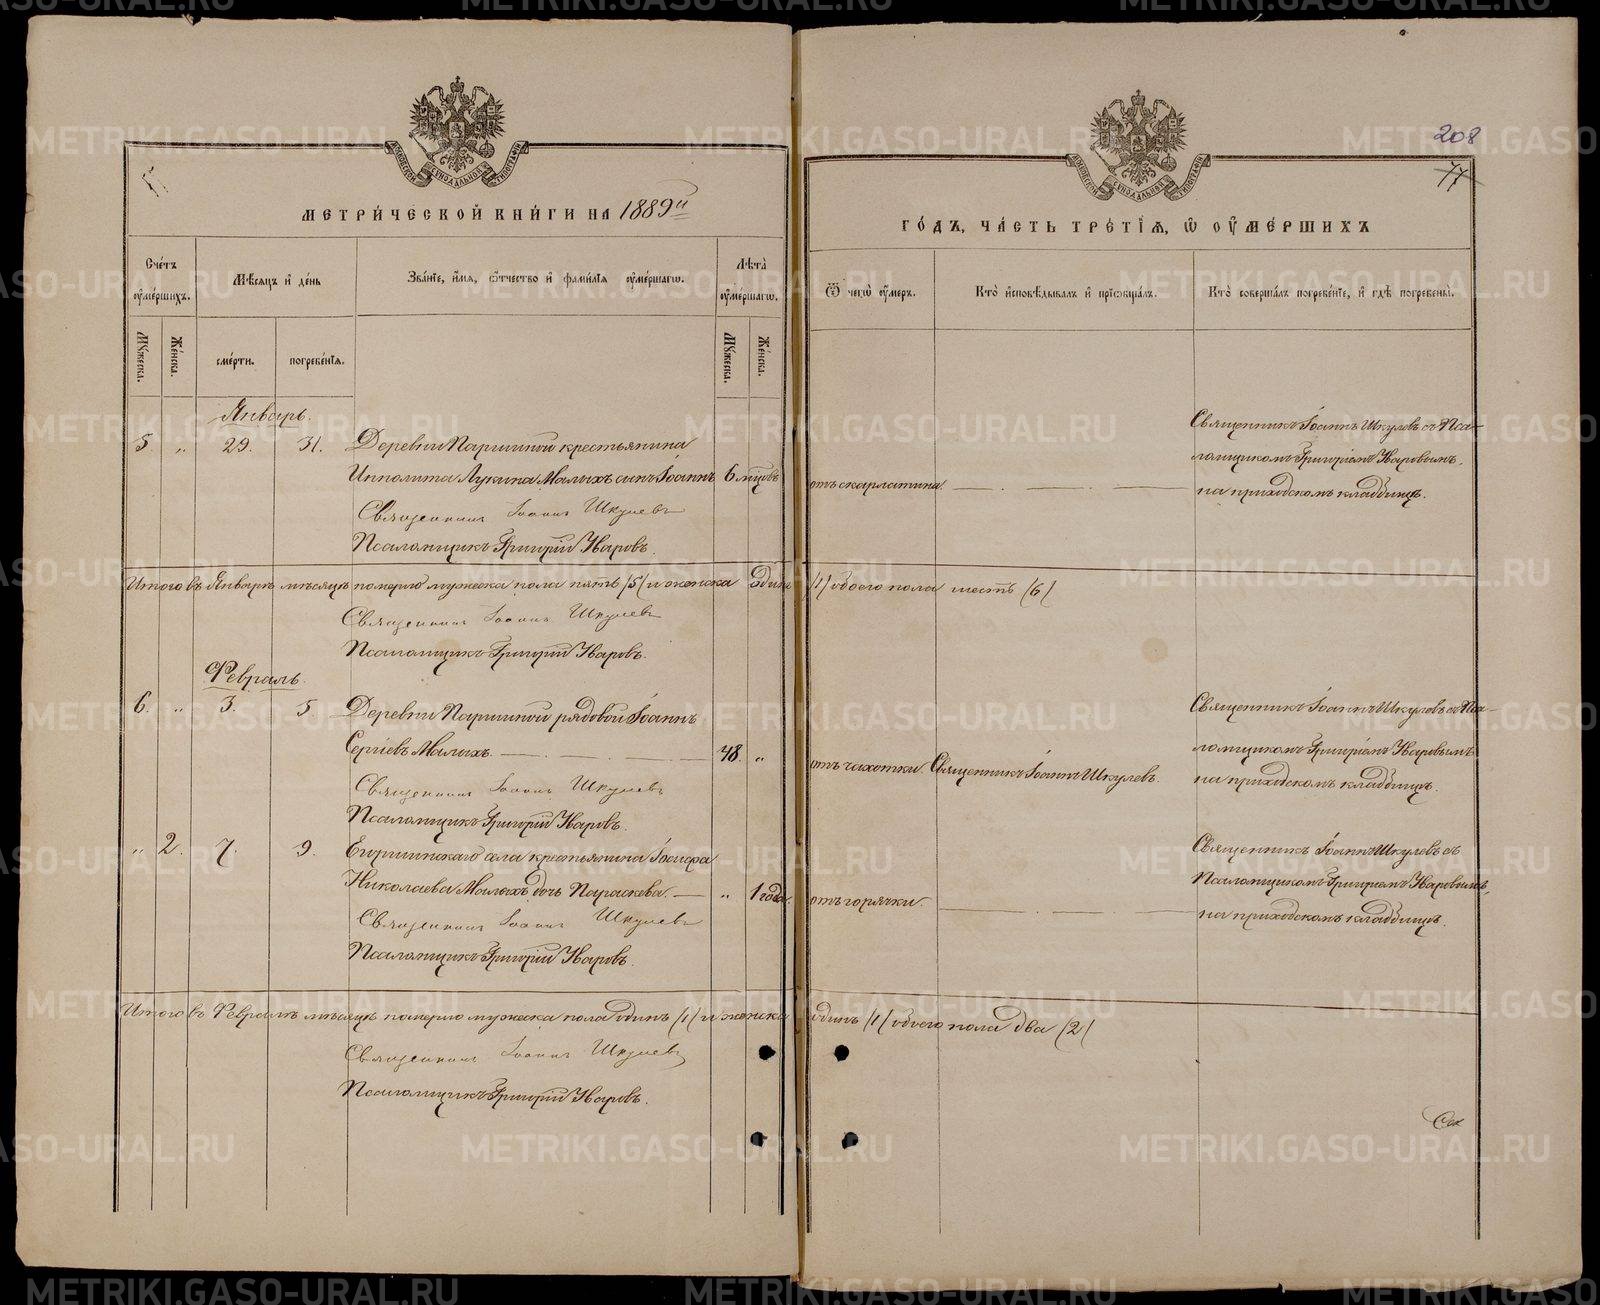 МЕТРИЧЕСКОЙ КНИГИ НА 1889й
Счетъ умершихъ.
Мѣсяцъ и день
Званіе, имя, отчество и фамилія умершаго.
Лѣта умершаго.
Мужеска.
Женска.
смерти.
погребенія.
Мужеска.
Женска.
Январь.
5 „ 29. 31. Деревни Паршиной крестьянина
Ипполита Лукина Малыхъ сынъ Іоаннъ 6 мцовъ
Священникъ Іоаннъ Шкулевъ
Псаломщикъ Григорій Уваровъ.
Итого въ Январѣ мѣсяцѣ померло мужеска пола пять (5) и женска одинъ
Священникъ Іоаннъ Шкулевъ
Псаломщикъ Григорій Уваровъ.
Февраль.
6. „ 3. 5 Деревни Паршиной рядовой Іоаннъ
Сергіевъ Малыхъ. 48. „
Священникъ Іоаннъ Шкулевъ
Псаломщикъ Григорій Уваровъ.
„ 2. 7. 9. Егоршинскаго села крестьянина Іосифа
Николаева Малыхъ дочь Параскева. „ 1 года.
Священникъ Іоаннъ Шкулевъ
Псаломщикъ Григорій Уваровъ.
Итого въ Февралѣ мѣсяцѣ померло мужеска пола одинъ (1) и женска
Священникъ Іоаннъ Шкулевъ
Псаломщикъ Григорій Уваровъ.
208
77
ГОДЪ, ЧАСТЬ ТРЕТІЯ, Ѡ ОУМЕРШИХЪ
Ѿ чегѡ умеръ.
Кто исповѣдывалъ и пріобщалъ.
Кто совершалъ погребеніе, и гдѣ погребены.
Священникъ Іоаннъ Шкулевъ съ Пса-
ломщикомъ Григоріемъ Уваровымъ,
отъ скарлатины.
на приходскомъ кладбищѣ.
(1) обоего пола шесть (6)
Священникъ Іоаннъ Шкулевъ съ Пса-
ломщикомъ Григоріемъ Уваровымъ
отъ чахотки. Священникъ Іоаннъ Шкулевъ.
на приходскомъ кладбищѣ.
Священникъ Іоаннъ Шкулевъ съ
Псаломщикомъ Григоріемъ Уваровымъ,
отъ горячки.
на приходскомъ кладбищѣ.
одинъ (1) обоего пола два (2)
METRIKI.GASO-URAL.RU